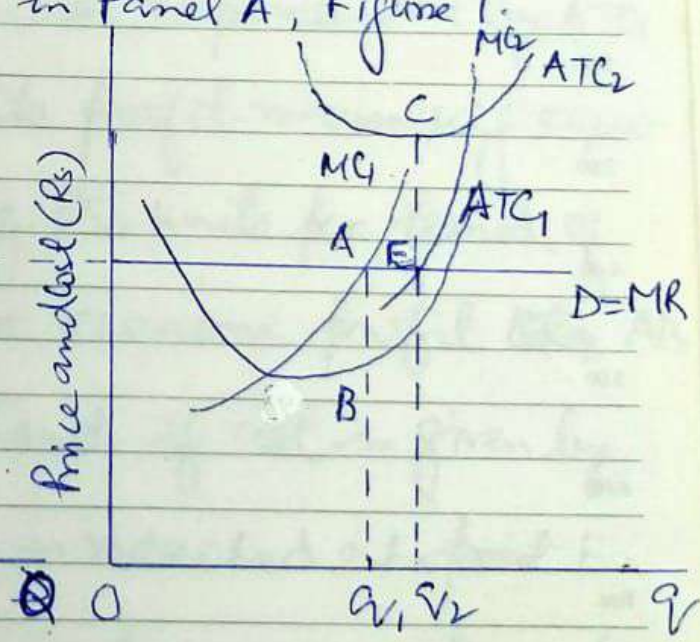 in Panel A, Figure 1.
MC2
ATC2
C
MC1
ATC1
A
E
D=MR
B
Price and Cost (Rs)
O
q1 q2
q